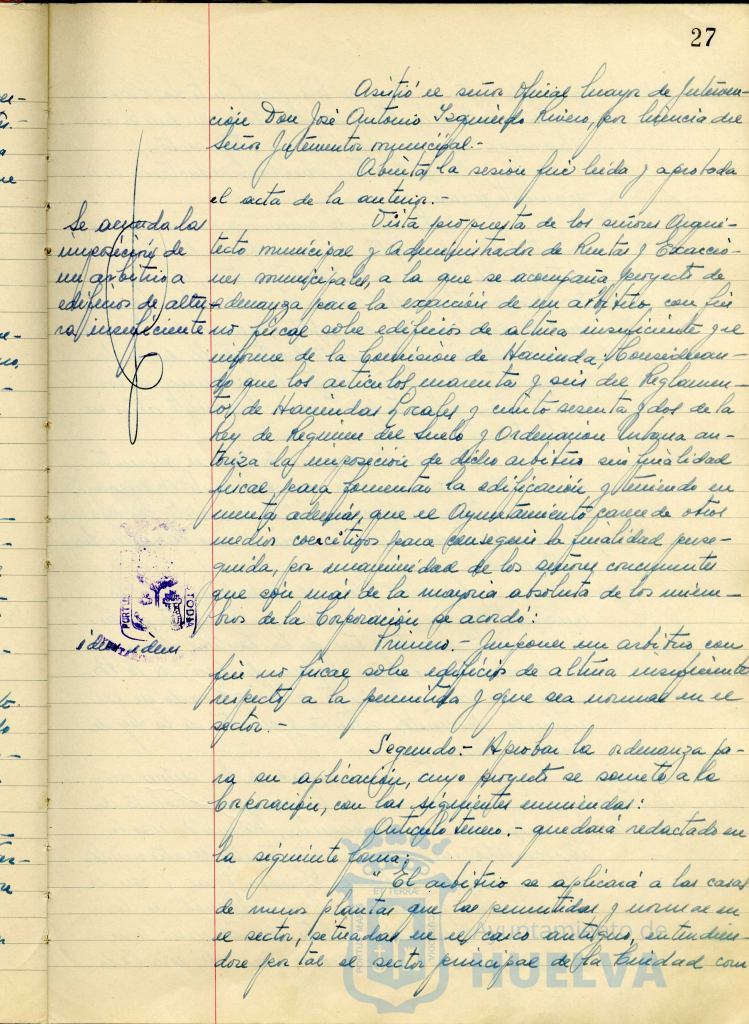 27
Asistió el señor Oficial Mayor de Interven-
ción Don José Antonio Izquierdo Rivero, por licencia del
Señor Interventor municipal.-
Abierta la sesión fué leída y aprobada
el acta de la anterior.-
Se acuerda la
imposición de
un arbitrio a
edificios de altu-
ra insuficiente
Vista propuesta de los señores Arqui-
tecto municipal y Administrador de Rentas y Exaccio-
nes municipales, a la que se acompaña proyecto de
ordenanza para la exacción de un arbitrio, con fin
no fiscal sobre edificios de altura insuficiente y el
informe de la Comisión de Hacienda, Consideran-
do que los artículos cuarenta y seis del Reglamen-
to de Haciendas Locales y ciento sesenta y dos de la
Ley de Regimen del Suelo y Ordenación Urbana au-
toriza la imposición de dicho arbitrio sin finalidad
fiscal, para fomentar la edificación y teniendo en
cuenta además, que el Ayuntamiento carece de otros
medios coercitivos para conseguir la finalidad perse-
guida, por unanimidad de los señores concurrentes
que son más de la mayoría absoluta de los miem-
bros de la Corporación se acordó:
idem idem
Primero.- Imponer un arbitrio con
fin no fiscal sobre edificios de altura insuficiente
respecto a la permitida y que sea normal en el
sector.-
Segundo.- Aprobar la ordenanza pa-
ra su aplicación, cuyo proyecto se somete a la
Corporación, con las siguientes enmiendas:
Artículo tercero.- quedará redactado en
la siguiente forma:
"El arbitrio se aplicará a las casas
de menos plantas que las permitidas y normal en
el sector, situadas en el casco antiguo, entendien-
dose por tal el sector principal de la Ciudad com
Ayuntamiento de
HUELVA